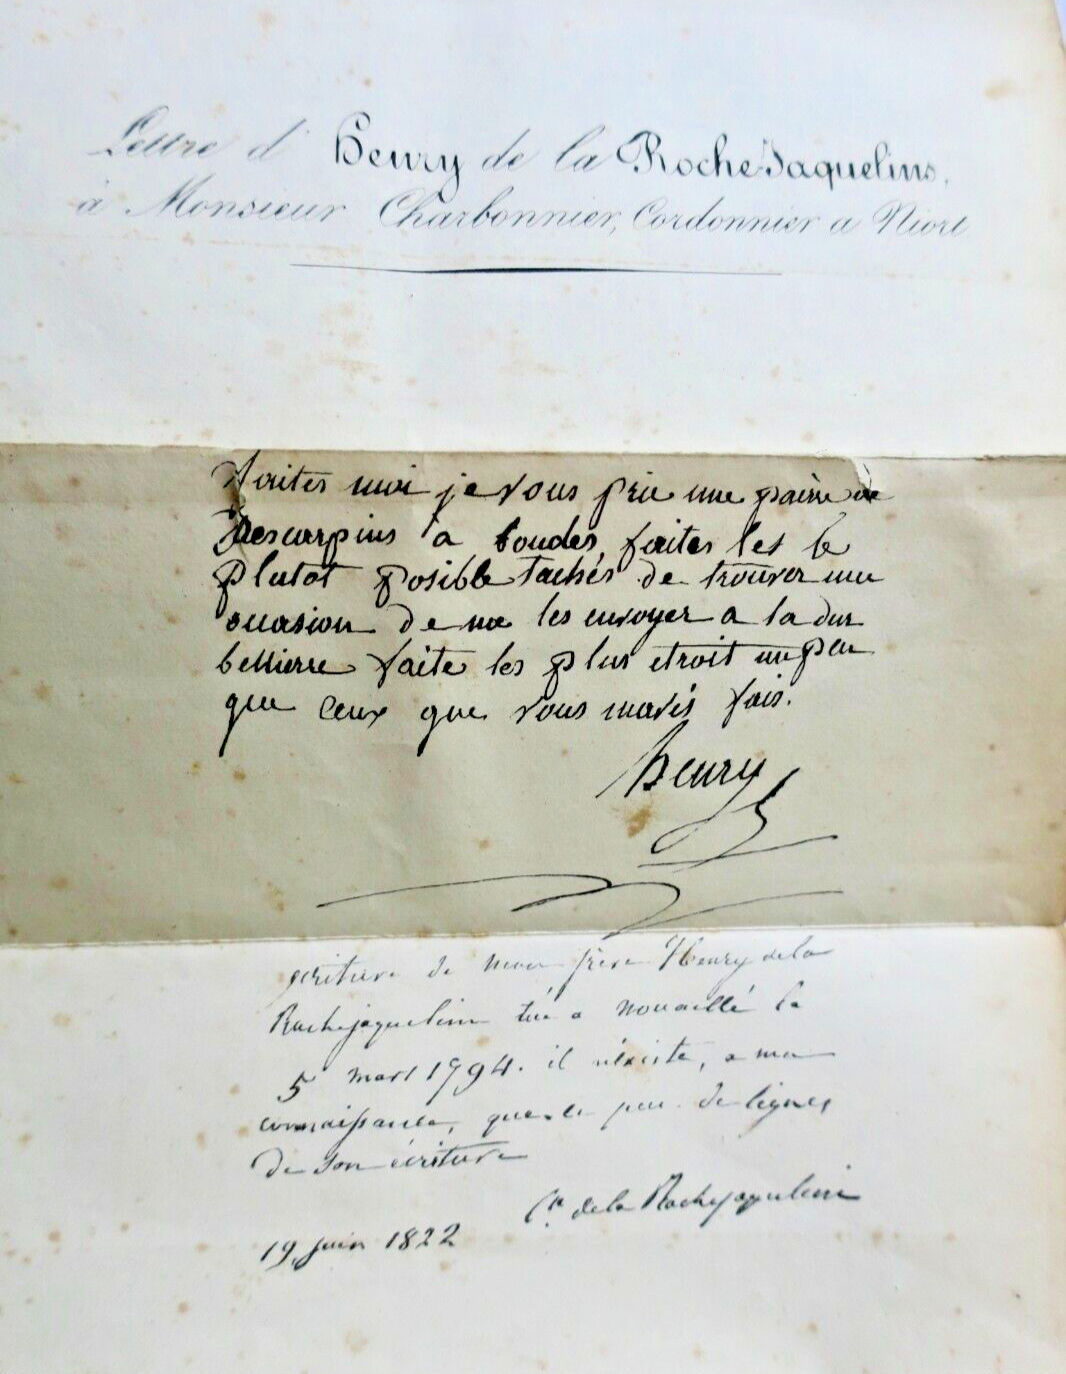 Lettre d' Henry de la Roche-Jaquelins,
à Monsieur Charbonnier, Cordonnier a Niort
faites moi je vous prie une paire de
descarpins a boucles, faites les le
plutot posible tachés de trouver une
occasion de me les envoyer a la dur
bellierre faite les plus etroit un peu
que ceux que vous mavés fais.
henry
ecriture de mon frere Henry de la
Rochejaquelein tué a nouaillé le
5 mars 1794. il n'existe, a ma
connaissance, que ce peu de lignes
de son écriture
Cte de la Rochejaquelein
19 juin 1822